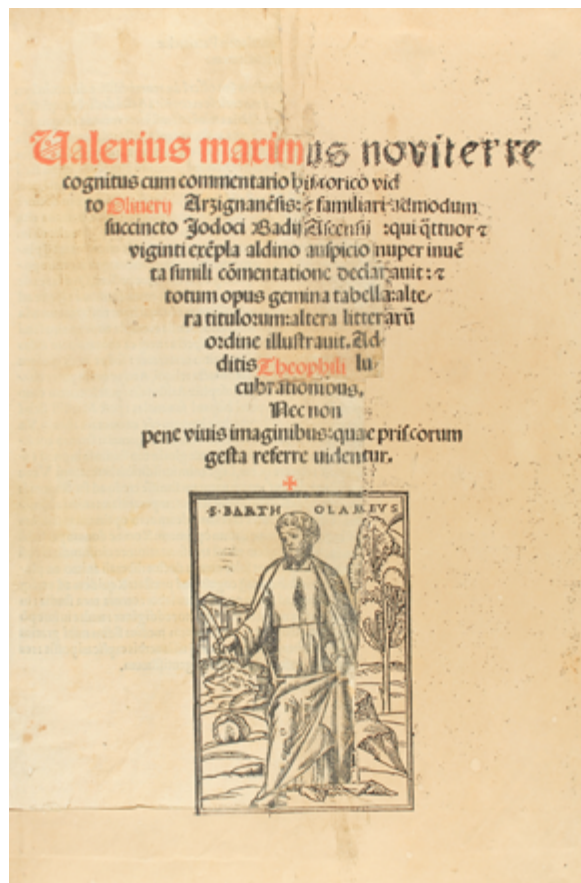 Ualerius maximus noviter re
cognitus cum commentario historico vid
to Oliuerij Arzignanēsis: ⁊ familiari admodum
succincto Jodoci Badij Ascensij :qui q̄ttuor ⁊
viginti exēpla aldino auspicio nuper inuē
ta simili cōmentatione declarauit: ⁊
totum opus gemina tabella:alte/
ra titulorum:altera litterarū
ordine illustrauit. Ad-
ditis Theophili lu
cubrationibus.
Nec non
pene viuis imaginibus:quae priscorum
gesta referre uidentur.
S·BARTH OLAMEVS